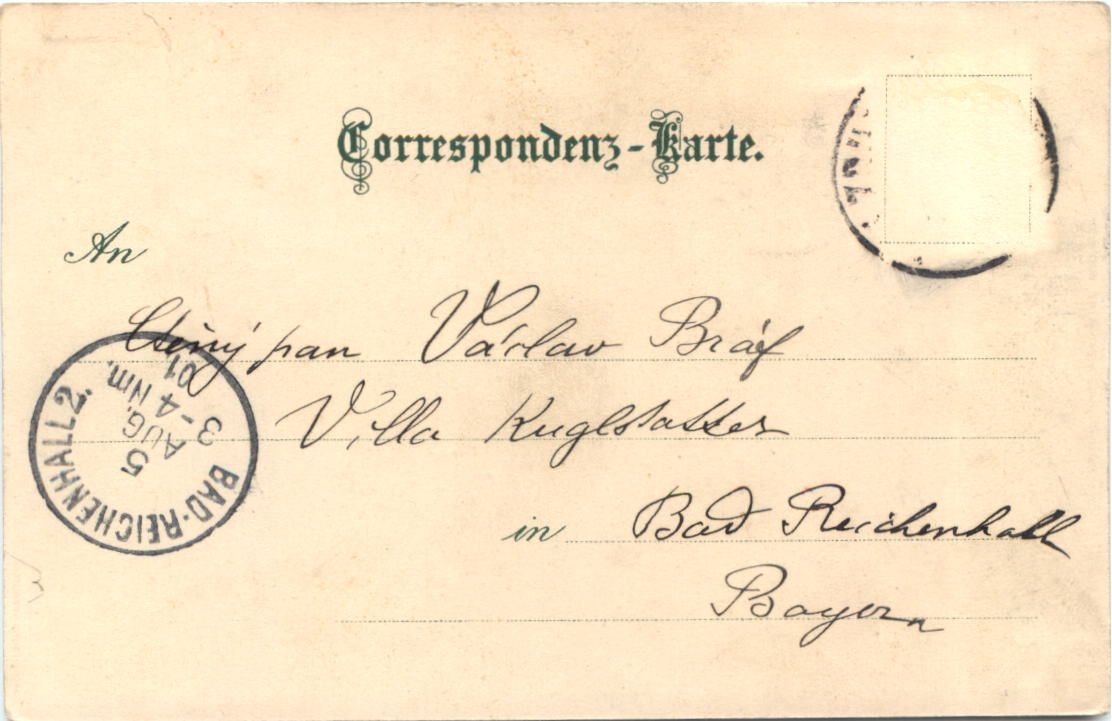 Correspondenz-Karte.
An
Ctěný pan Václav Bráf
Villa Kuglstatter
in Bad Reichenhall
Bayern
BAD-REICHENHALL 2.
5
AUG.
3-4 Nm.
01